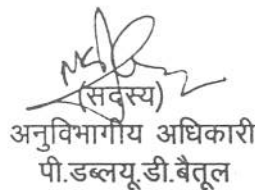 (सदस्य)
अनुविभागीय अधिकारी
पी.डब्लयू.डी.बैतूल